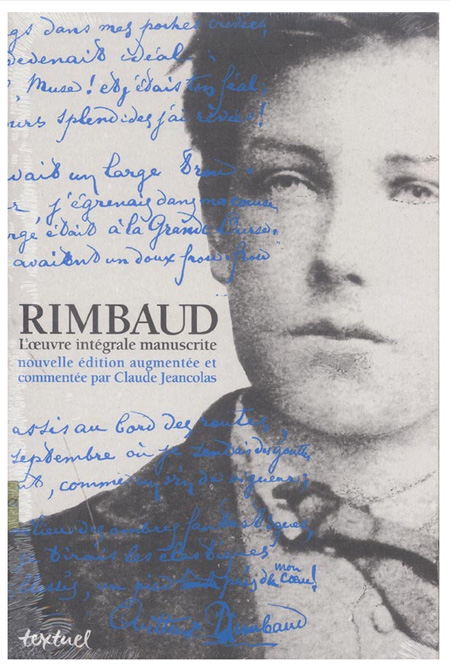 gs dans mes poches crevées
devenait idéal ;
, Muse ! et j'étais ton féal ;
ours splendides j'ai rêvées !
avait un large trou.
r, j'égrenais dans ma course
rge était à la Grande-Ourse.
avaient un doux frou-frou
RIMBAUD
L'œuvre intégrale manuscrite
nouvelle édition augmentée et
commentée par Claude Jeancolas
assis au bord des routes,
septembre où je sentais des gouttes
, comme un vin de vigueur ;
des ombres fantastiques
tirais les élastiques
blessés, un pied près de mon cœur !
Arthur Rimbaud
textuel